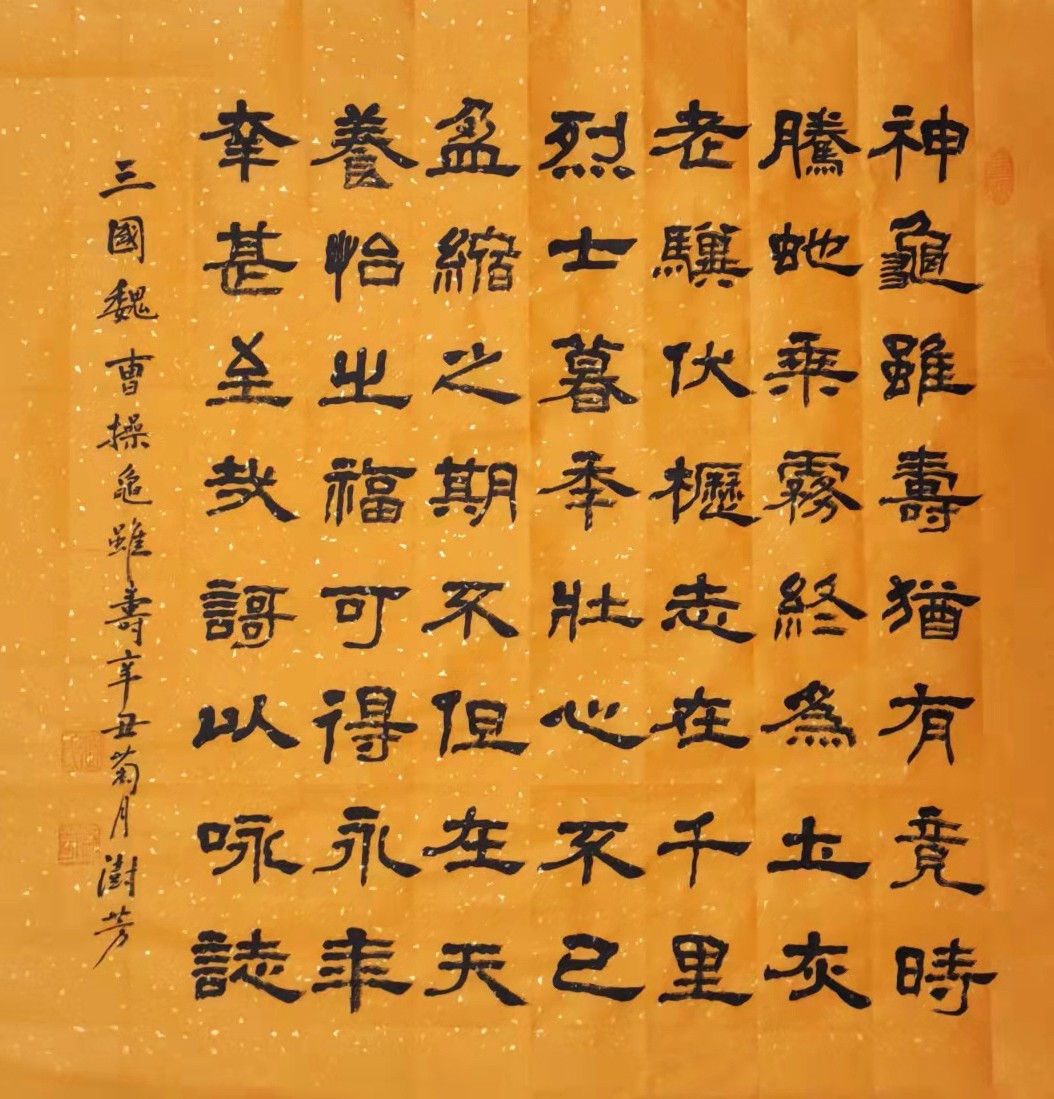 神龜雖壽猶有竟時
騰虵乘霧終為土灰
老驥伏櫪志在千里
烈士暮年壯心不已
盈縮之期不但在天
養怡之福可得永年
幸甚至哉謌以咏誌
三國魏曹操龜雖壽辛丑菊月澍芳